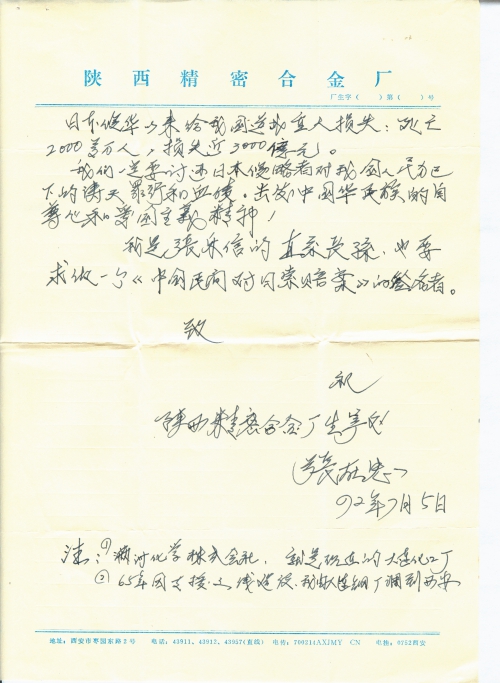 陕西精密合金厂
厂生字(  )第(  )号
日本侵华以来给我国造成重大损失：死亡
2000多万人，损失近3000億元。
我们一定要讨还日本侵略者对我国人民犯
下的涛天罪行和血债。出发中国华民族的自
尊心和爱国主义精神！
我是張乐信的直系长孫，也要
求做一个《中国民间对日索赔案》的签名者。
致
礼
陕西精密合金厂生
張在忠
92年7月5日
注：①满州化学株式会社，就是现在的大连化工厂
②65年因支援三线建设，我从大连钢厂调到西安
地址：西安市枣园东路2号 电话：43911、43912、43957(直线) 电传：700214AXJMY CN 电挂：0752西安